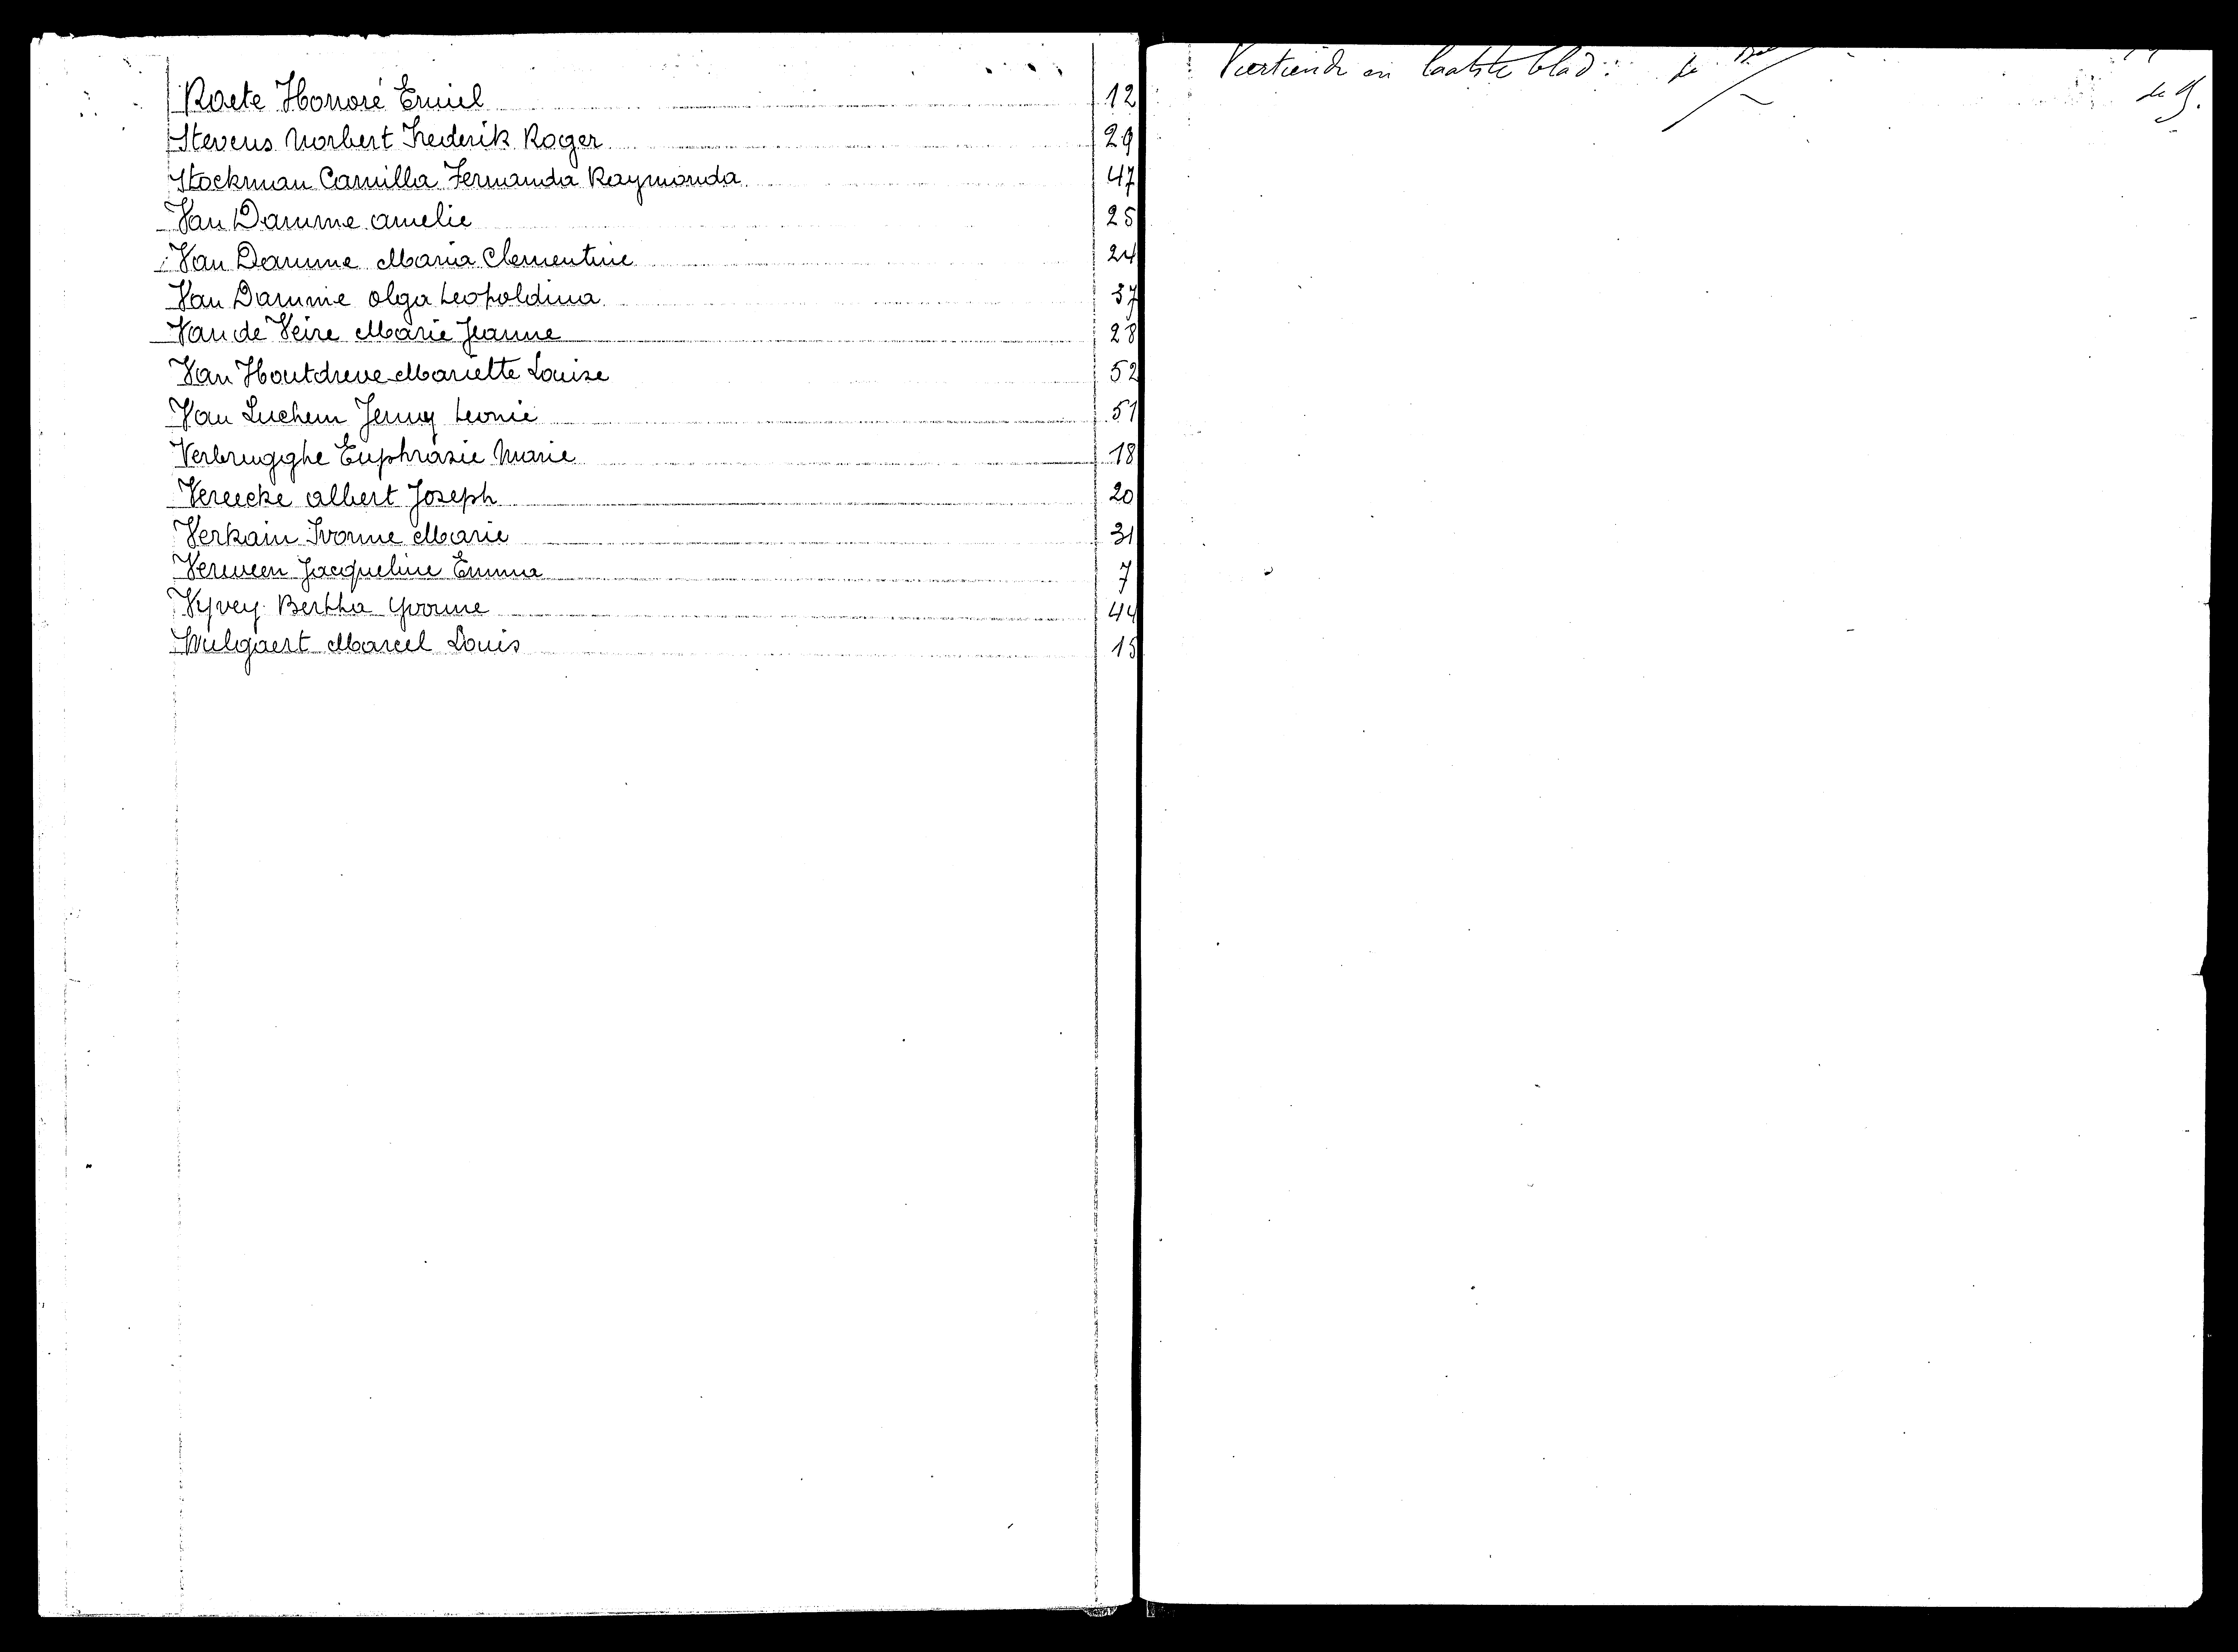 Roete Honoré Emiel 12
Stevens Norbert Frederik Roger 29
Stockman Camilla Fernanda Raymonda 47
Van Damme Amelie 25
Van Damme Maria Clementine 24
Van Damme Olga Leopoldina 37
Van de Veire Marie Jeanne 28
Van Houtdreve Mariette Louise 52
Van Luchem Jenny Leonie 51
Verbrugghe Euphrasie Marie 18
Vereecke Albert Joseph 20
Verkain Ivonne Marie 31
Verween Jacqueline Emma 7
Vyvey Bertha Yvonne 44
Wulgaert Marcel Louis 15
Veertiende en laatste blad: